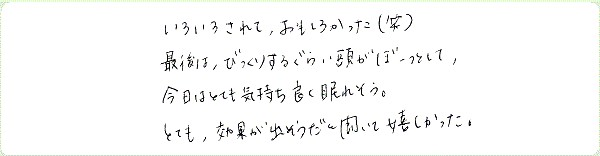 いろいろされて，おもしろかった（笑）
最後は，びっくりするぐらい頭がぼーっとして，
今日はとても気持ち良く眠れそう。
とても，効果が出そうだと聞いて嬉しかった。